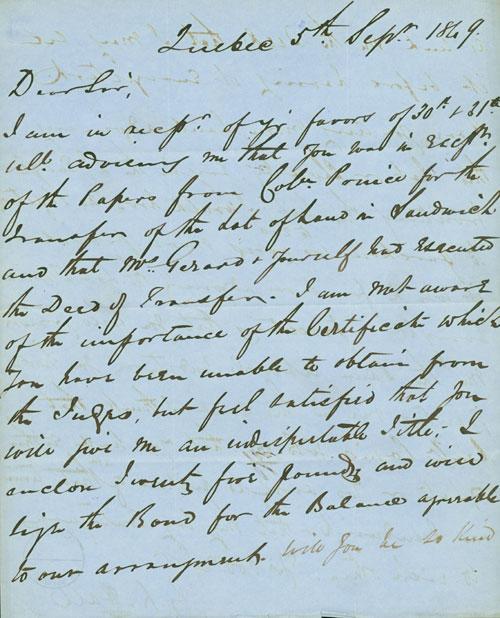 Quebec 5th Sepr. 1849.
Dear Sir,
I am in recpt. of yr favors of 30th & 31st
ulto. advising me that You was in Recpt.
of the Papers from Colo. Prince for the
transfer of the Lot of Land in Sandwich
and that Mr. Gerard & Yourself had Executed
the Deed of Transfer. I am not aware
of the importance of the Certificate which
You have been unable to obtain from
the Judges, but feel satisfied that You
will give me an indisputable Title. I
enclose Twenty five pounds and will
sign the Bond for the Balance agreeable
to our arrangement. will You be so kind